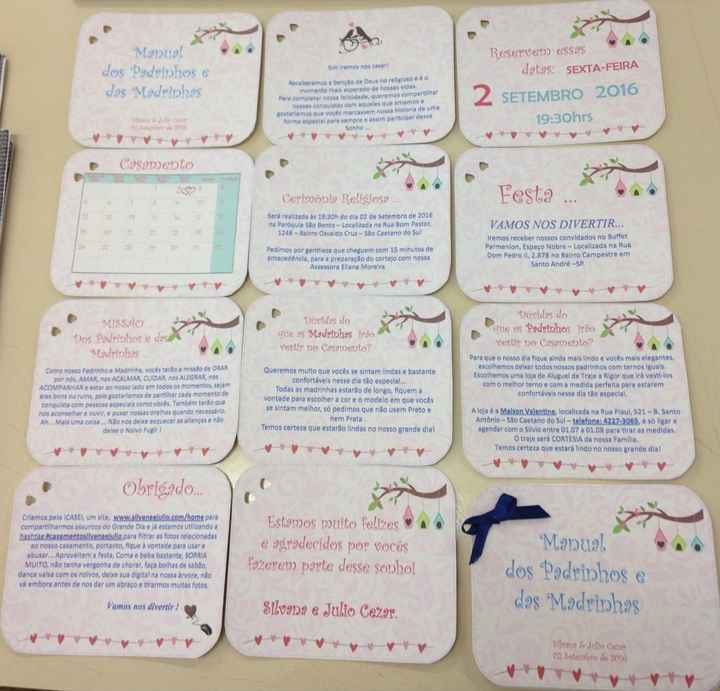 Manual
dos Padrinhos e
das Madrinhas
Silvana & Julio Cezar
02 Setembro de 2016
Sim iremos nos casar!
Receberemos a benção de Deus no religioso e é o
momento mais esperado de nossas vidas.
Para completar nossa felicidade, queremos compartilhar
nossas conquistas com aqueles que amamos e
gostaríamos que vocês marcassem nossa história de uma
forma especial para sempre e assim participar desse
Sonho ...
Reservem essas
datas: SEXTA-FEIRA
2 SETEMBRO 2016
19:30hrs
Casamento
Cerimônia Religiosa ...
Será realizada às 19:30h do dia 02 de Setembro de 2016
na Paróquia São Bento – Localizada na Rua Bom Pastor,
1248 – Bairro Osvaldo Cruz – São Caetano do Sul
Pedimos por gentileza que cheguem com 15 minutos de
antecedência, para a preparação do cortejo com nossa
Assessora Eliana Moreira
Festa ...
VAMOS NOS DIVERTIR...
Iremos receber nossos convidados no Buffet
Parmenion, Espaço Nobre – Localizada na Rua
Dom Pedro II, 2.878 no Bairro Campestre em
Santo André –SP.
MISSÃO
Dos Padrinhos e das
Madrinhas
Como nosso Padrinho e Madrinha, vocês terão a missão de ORAR
por nós, AMAR, nos ACALMAR, CUIDAR, nos ALEGRAR, nos
ACOMPANHAR e estar ao nosso lado em todos os momentos, sejam
eles bons ou ruins, pois gostaríamos de partilhar cada momento de
conquista com pessoas especiais como vocês. Também terão que
nos aconselhar e ouvir, e puxar nossas orelhas quando necessário.
Ah... Mais uma coisa ... Não nos deixe esquecer as alianças e não
deixe o Noivo Fugir !
Dúvidas do
que as Madrinhas irão
vestir no Casamento?
Queremos muito que vocês se sintam lindas e bastante
confortáveis nesse dia tão especial...
Todas as madrinhas estarão de longo, fiquem a
vontade para escolher a cor e o modelo em que vocês
se sintam melhor, só pedimos que não usem Preto e
nem Prata .
Temos certeza que estarão lindas no nosso grande dia!
Dúvidas do
que os Padrinhos irão
vestir no Casamento?
Para que o nosso dia fique ainda mais lindo e vocês mais elegantes,
escolhemos deixar todos nossos padrinhos com ternos iguais.
Escolhemos uma loja de Aluguel de Traje a Rigor que irá vesti-los
com o melhor terno e com a medida perfeita para estarem
confortáveis nesse dia tão especial.
A loja é a Maison Valentine, localizada na Rua Piauí, 521 – B. Santo
Antônio – São Caetano do Sul – telefone: 4227-3069, é só ligar e
agendar com o Silvio entre 01.07 a 01.08 para tirar as medidas.
O traje será CORTESIA da nossa Família.
Temos certeza que estará lindo no nosso grande dia!
Obrigado...
Criamos pelo ICASEI, um site, www.silvanaejulio.com/home para
compartilharmos assuntos do Grande Dia e já estamos utilizando a
hashtag #casamentosilvanaejulio para filtrar as fotos relacionadas
ao nosso casamento, portanto, fique à vontade para usar e
abusar... Aproveitem a festa. Coma e beba bastante, SORRIA
MUITO, não tenha vergonha de chorar, faça bolhas de sabão,
dance valsa com os noivos, deixe sua digital na nossa árvore, não
vá embora antes de nos dar um abraço e tirarmos muitas fotos.
Vamos nos divertir !
Estamos muito felizes
e agradecidos por vocês
fazerem parte desse sonho!
Silvana e Julio Cezar.
Manual
dos Padrinhos e
das Madrinhas
Silvana & Julio Cezar
02 Setembro de 2016